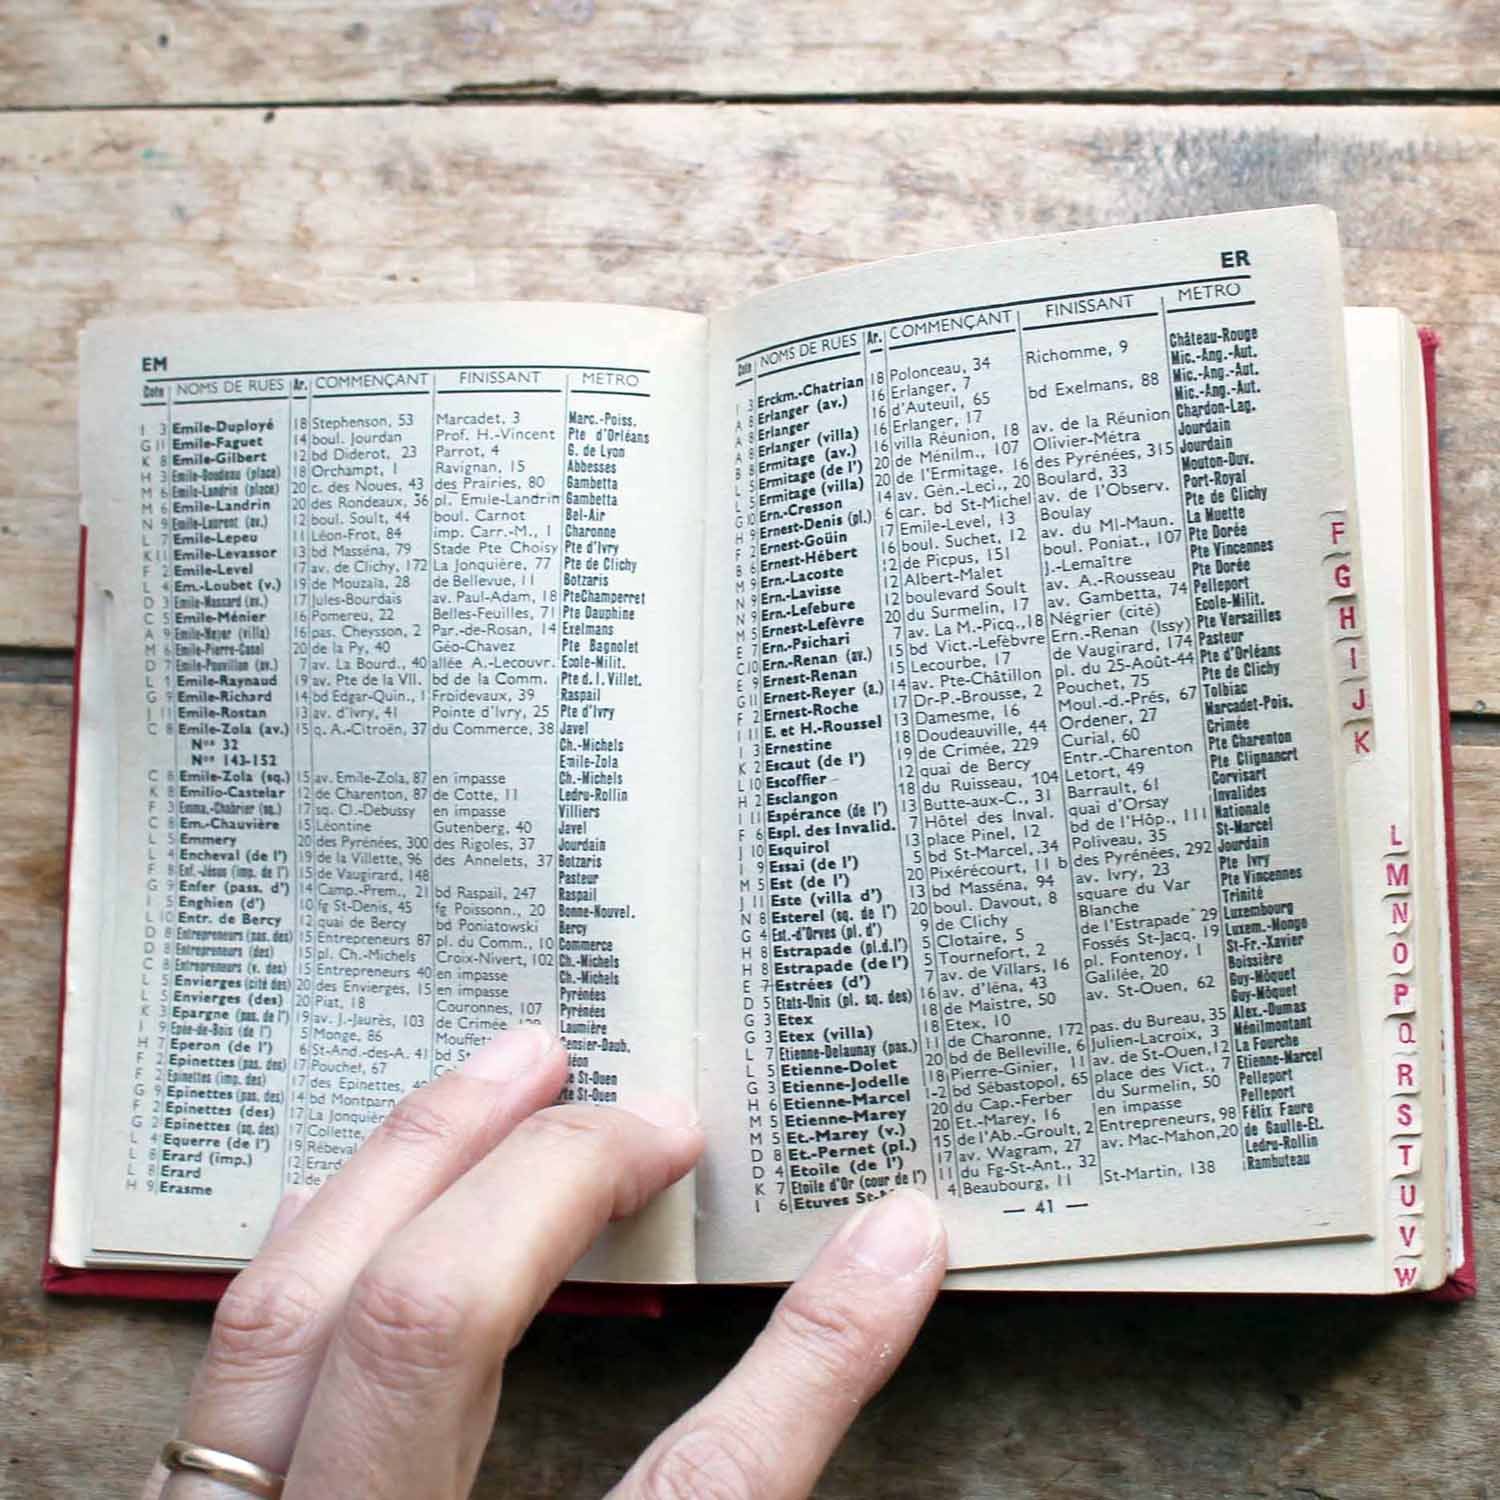 EM
Cote NOMS DE RUES Ar. COMMENÇANT FINISSANT METRO
I 3 Emile-Duployé 18 Stephenson, 53 Marcadet, 3 Marc.-Poiss.
G 11 Emile-Faguet 14 boul. Jourdan Prof. H.-Vincent Pte d'Orléans
K 8 Emile-Gilbert 12 bd Diderot, 23 Parrot, 4 G. de Lyon
H 3 Emile-Goudeau (place) 18 Orchampt, 1 Ravignan, 15 Abbesses
M 6 Emile-Landrin (place) 20 c. des Noues, 43 des Prairies, 80 Gambetta
M 6 Emile-Landrin 20 des Rondeaux, 36 pl. Emile-Landrin Gambetta
N 9 Emile-Laurent (av.) 12 boul. Soult, 44 boul. Carnot Bel-Air
L 7 Emile-Lepeu 11 Léon-Frot, 84 imp. Carr.-M., 1 Charonne
K 11 Emile-Levassor 13 bd Masséna, 79 Stade Pte Choisy Pte d'Ivry
F 2 Emile-Level 17 av. de Clichy, 172 La Jonquière, 77 Pte de Clichy
L 4 Em.-Loubet (v.) 19 de Mouzaïa, 28 de Bellevue, 11 Botzaris
D 3 Emile-Massard (av.) 17 Jules-Bourdais av. Paul-Adam, 18 Pte Champerret
C 5 Emile-Ménier 16 Pomereu, 22 Belles-Feuilles, 71 Pte Dauphine
A 9 Emile-Meyer (villa) 16 pas. Cheysson, 2 Par.-de-Rosan, 14 Exelmans
M 6 Emile-Pierre-Casel 20 de la Py, 40 Géo-Chavez Pte Bagnolet
D 7 Emile-Pouvillon (av.) 7 av. La Bourd., 40 allée A.-Lecouvr. Ecole-Milit.
L 1 Emile-Raynaud 19 av. Pte de la Vil. bd de la Comm. Pte d. l. Villet.
G 9 Emile-Richard 14 bd Edgar-Quin., 1 Froidevaux, 39 Raspail
J 11 Emile-Rostan 13 av. d'Ivry, 41 Pointe d'Ivry, 25 Pte d'Ivry
C 8 Emile-Zola (av.) 15 q. A.-Citroën, 37 du Commerce, 38 Javel
Nos 32 Ch.-Michels
Nos 143-152 Emile-Zola
C 8 Emile-Zola (sq.) 15 av. Emile-Zola, 87 en impasse Ch.-Michels
K 8 Emilio-Castelar 12 de Charenton, 87 de Cotte, 11 Ledru-Rollin
F 3 Emma.-Chabrier (sq.) 17 sq. Cl.-Debussy en impasse Villiers
C 8 Em.-Chauvière 15 Léontine Gutenberg, 40 Javel
L 5 Emmery 20 des Pyrénées, 300 des Rigoles, 37 Jourdain
L 4 Encheval (de l') 19 de la Villette, 96 des Annelets, 37 Botzaris
F 8 Enf.-Jésus (imp. de l') 15 de Vaugirard, 148 Pasteur
G 9 Enfer (pass. d') 14 Camp.-Prem., 21 bd Raspail, 247 Raspail
I 5 Enghien (d') 10 fg St-Denis, 45 fg Poissonn., 20 Bonne-Nouvel.
L 10 Entr. de Bercy 12 quai de Bercy bd Poniatowski Bercy
D 8 Entrepreneurs (pas. des) 15 Entrepreneurs 87 pl. du Comm., 10 Commerce
D 8 Entrepreneurs (des) 15 pl. Ch.-Michels Croix-Nivert, 102 Ch.-Michels
C 8 Entrepreneurs (v. des) 15 Entrepreneurs 40 en impasse Ch.-Michels
L 5 Envierges (cité des) 20 des Envierges, 15 en impasse Pyrénées
L 5 Envierges (des) 20 Piat, 18 Couronnes, 107 Pyrénées
K 3 Epargne (pas. de l') 19 av. J.-Jaurès, 103 de Crimée Laumière
I 9 Epée-de-Bois (de l') 5 Monge, 86 Mouffet Censier-Daub.
H 7 Eperon (de l') 6 St-And.-des-A. 41 bd St
F 2 Epinettes (pas. des) 17 Pouchet, 67 St-Ouen
F 2 Epinettes (imp. des) 17 des Epinettes, St-Ouen
G 9 Epinettes (pas. des) 14 bd Montparn
F 2 Epinettes (des) 17 La Jonquière
G 2 Epinettes (sq. des) 17 Collette,
L 4 Equerre (de l') 19 Rébeval
L 8 Erard (imp.) 12 Erard
L 8 Erard 12 de
H 9 Erasme
ER
Cote NOMS DE RUES Ar. COMMENÇANT FINISSANT METRO
I 3 Erckm.-Chatrian 18 Polonceau, 34 Richomme, 9 Château-Rouge
A 8 Erlanger (av.) 16 Erlanger, 7 Mic.-Ang.-Aut.
A 8 Erlanger 16 d'Auteuil, 65 bd Exelmans, 88 Mic.-Ang.-Aut.
A 8 Erlanger (villa) 16 Erlanger, 17 Mic.-Ang.-Aut.
B 8 Ermitage (av.) 16 villa Réunion, 18 av. de la Réunion Chardon-Lag.
L 5 Ermitage (de l') 20 de Ménilm., 107 Olivier-Métra Jourdain
L 5 Ermitage (villa) 20 de l'Ermitage, 16 des Pyrénées, 315 Jourdain
G 10 Ern.-Cresson 14 av. Gén.-Lecl., 20 Boulard, 33 Mouton-Duv.
Ernest-Denis (pl.) 6 car. bd St-Michel av. de l'Observ. Port-Royal
F 2 Ernest-Goüin 17 Emile-Level, 13 Boulay Pte de Clichy
B 6 Ernest-Hébert 16 boul. Suchet, 12 av. du Ml-Maun. La Muette
M 9 Ern.-Lacoste 12 de Picpus, 151 boul. Poniat., 107 Pte Dorée
N 9 Ern.-Lavisse 12 Albert-Malet J.-Lemaître Pte Vincennes
N 9 Ern.-Lefebure 12 boulevard Soult av. A.-Rousseau Pte Dorée
M 5 Ernest-Lefèvre 20 du Surmelin, 17 av. Gambetta, 74 Pelleport
E 7 Ern.-Psichari 7 av. La M.-Picq., 18 Négrier (cité) Ecole-Milit.
C 10 Ern.-Renan (av.) 15 bd Vict.-Lefèbvre Ern.-Renan (Issy) Pte Versailles
E 9 Ernest-Renan 15 Lecourbe, 17 de Vaugirard, 174 Pasteur
G 11 Ernest-Reyer (a.) 14 av. Pte-Châtillon pl. du 25-Août-44 Pte d'Orléans
F 2 Ernest-Roche 17 Dr-P.-Brousse, 2 Pouchet, 75 Pte de Clichy
I 11 E. et H.-Roussel 13 Damesme, 16 Moul.-d.-Prés, 67 Tolbiac
I 3 Ernestine 18 Doudeauville, 44 Ordener, 27 Marcadet-Pois.
K 2 Escaut (de l') 19 de Crimée, 229 Curial, 60 Crimée
L 10 Escoffier 12 quai de Bercy Entr.-Charenton Pte Charenton
H 2 Esclangon 18 du Ruisseau, 104 Letort, 49 Pte Clignancrt
I 11 Espérance (de l') 13 Butte-aux-C., 31 Barrault, 61 Corvisart
F 6 Espl. des Invalid. 7 Hôtel des Inval. quai d'Orsay Invalides
J 10 Esquirol 13 place Pinel, 12 bd de l'Hôp., 111 Nationale
I 9 Essai (de l') 5 bd St-Marcel, 34 Poliveau, 35 St-Marcel
M 5 Est (de l') 20 Pixérécourt, 11 b des Pyrénées, 292 Jourdain
J 11 Este (villa d') 13 bd Masséna, 94 av. Ivry, 23 Pte Ivry
N 8 Esterel (sq. de l') 20 boul. Davout, 8 square du Var Pte Vincennes
G 4 Est.-d'Orves (pl. d') 9 de Clichy Blanche Trinité
H 8 Estrapade (pl.d.l') 5 Clotaire, 5 de l'Estrapade 29 Luxembourg
H 8 Estrapade (de l') 5 Tournefort, 2 Fossés St-Jacq. 19 Luxem.-Monge
E 7 Estrées (d') 7 av. de Villars, 16 pl. Fontenoy, 1 St-Fr.-Xavier
D 5 Etats-Unis (pl. sq. des) 16 av. d'Iéna, 43 Galilée, 20 Boissière
G 3 Etex 18 de Maistre, 50 av. St-Ouen, 62 Guy-Môquet
G 3 Etex (villa) 18 Etex, 10 Guy-Môquet
L 7 Etienne-Delaunay (pas.) 11 de Charonne, 172 pas. du Bureau, 35 Alex.-Dumas
L 5 Etienne-Dolet 20 bd de Belleville, 6 Julien-Lacroix, 3 Ménilmontant
G 3 Etienne-Jodelle 18 Pierre-Ginier, 11 av. de St-Ouen, 12 La Fourche
H 6 Etienne-Marcel 1-2 bd Sébastopol, 65 place des Vict., 7 Etienne-Marcel
M 5 Etienne-Marey 20 du Cap.-Ferber du Surmelin, 50 Pelleport
M 5 Et.-Marey (v.) 20 Et.-Marey, 16 en impasse Pelleport
D 8 Et.-Pernet (pl.) 15 de l'Ab.-Groult, 2 Entrepreneurs, 98 Félix Faure
D 4 Etoile (de l') 17 av. Wagram, 27 av. Mac-Mahon, 20 de Gaulle-Et.
K 7 Etoile d'Or (cour de l') 11 du Fg-St-Ant., 32 Ledru-Rollin
I 6 Etuves St-M 4 Beaubourg, 11 St-Martin, 138 Rambuteau
— 41 —
F
G
H
I
J
K
L
M
N
O
P
Q
R
S
T
U
V
W